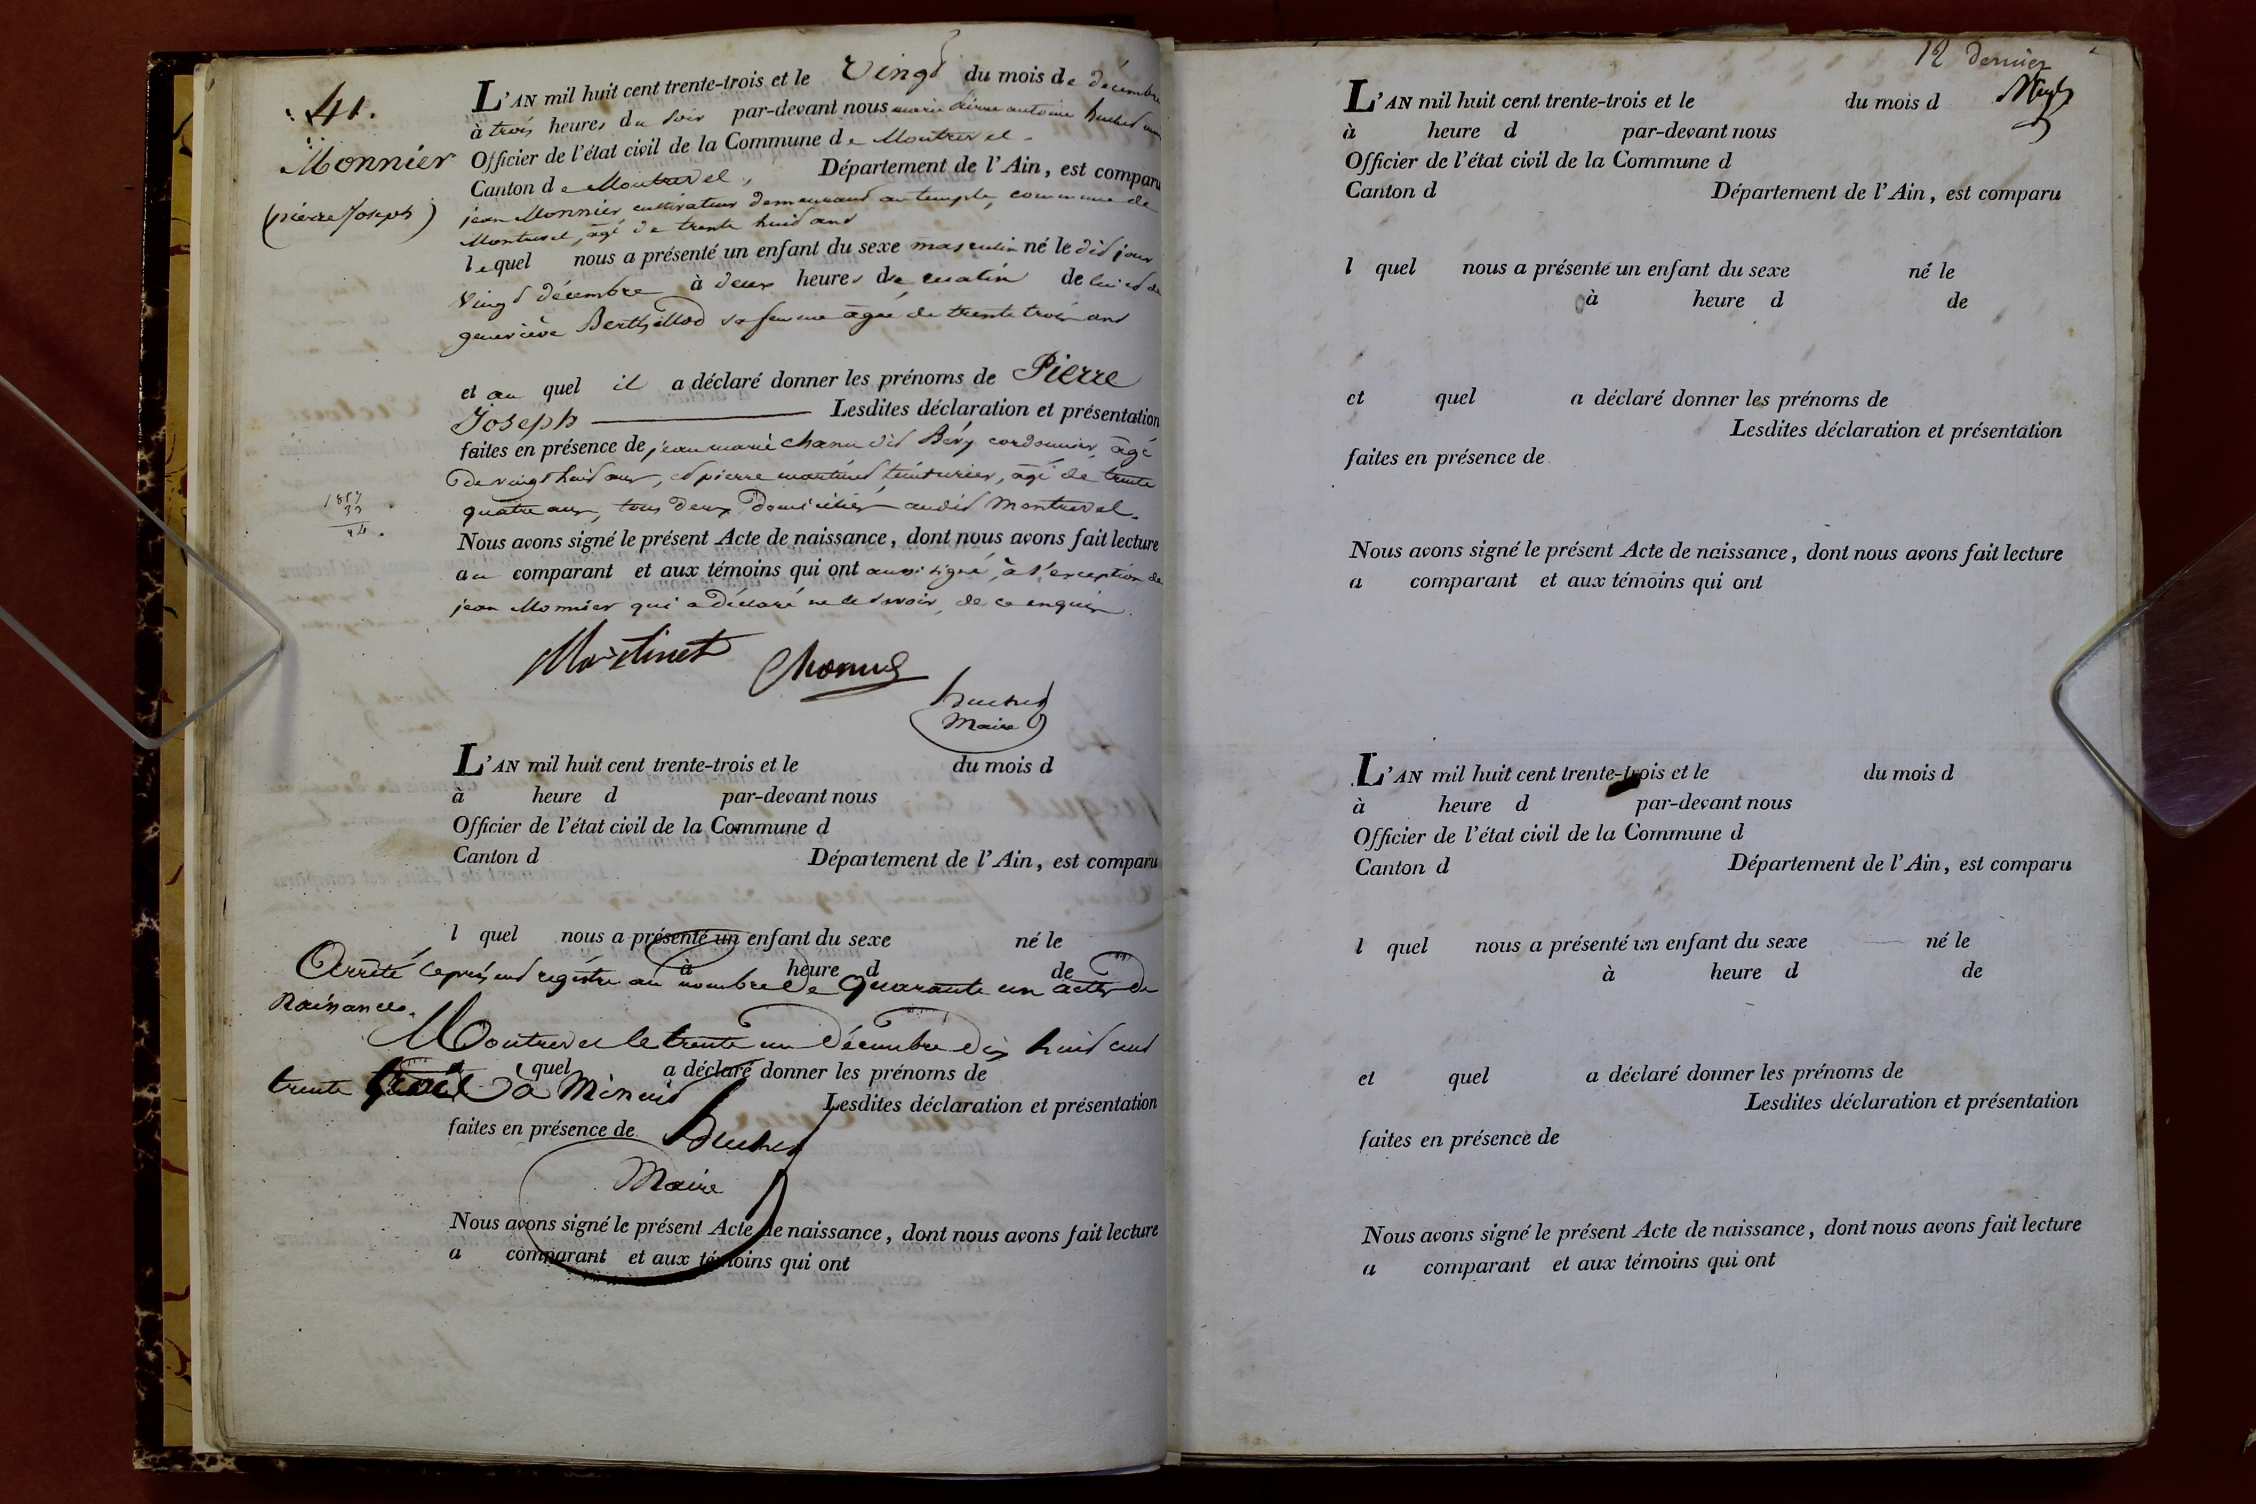 41.
Monnier
(pierre Joseph)
L'AN mil huit cent trente-trois et le Vingt du mois de décembre
à trois heures du soir par-devant nous marie antoine huchet
Officier de l'état civil de la Commune de Montrevel.
Canton de Montrevel, Département de l'Ain, est comparu
jean Monnier, cultivateur demeurant au temple, commune de
Montrevel, âgé de trente huit ans
lequel nous a présenté un enfant du sexe masculin né le dit jour
vingt décembre à deux heures de matin de lui et de
geneviève sa femme âgée de trente trois ans
et au quel il a déclaré donner les prénoms de Pierre
Joseph Lesdites déclaration et présentation
faites en présence de jean marie chanu dit Béry cordonnier, âgé
de vingt huit ans, et pierre martinet, teinturier, âgé de trente
quatre ans, tous deux Domiciliés audit Montrevel.
Nous avons signé le présent Acte de naissance, dont nous avons fait lecture
au comparant et aux témoins qui ont aussi signé, à l'exception de
jean Monnier qui a déclaré ne le savoir, de ce enquis.
Martinet
huchet
Maire
L'AN mil huit cent trente-trois et le du mois d
à heure d par-devant nous
Officier de l'état civil de la Commune d
Canton d Département de l'Ain, est comparu
l quel nous a présenté un enfant du sexe né le
à heure d de
Arrêté le présent registre au nombre de quarante un actes de
Naissances.
Montrevel le trente un Décembre dix huit cent
quel a déclaré donner les prénoms de
trente trois à Minuit
Lesdites déclaration et présentation
faites en présence de
huchet
Maire
Nous avons signé le présent Acte de naissance, dont nous avons fait lecture
a comparant et aux témoins qui ont
12 dernier
L'AN mil huit cent trente-trois et le du mois d
à heure d par-devant nous
Officier de l'état civil de la Commune d
Canton d Département de l'Ain, est comparu
l quel nous a présenté un enfant du sexe né le
à heure d de
et quel a déclaré donner les prénoms de
Lesdites déclaration et présentation
faites en présence de
Nous avons signé le présent Acte de naissance, dont nous avons fait lecture
a comparant et aux témoins qui ont
L'AN mil huit cent trente-trois et le du mois d
à heure d par-devant nous
Officier de l'état civil de la Commune d
Canton d Département de l'Ain, est comparu
l quel nous a présenté un enfant du sexe né le
à heure d de
et quel a déclaré donner les prénoms de
Lesdites déclaration et présentation
faites en présence de
Nous avons signé le présent Acte de naissance, dont nous avons fait lecture
a comparant et aux témoins qui ont